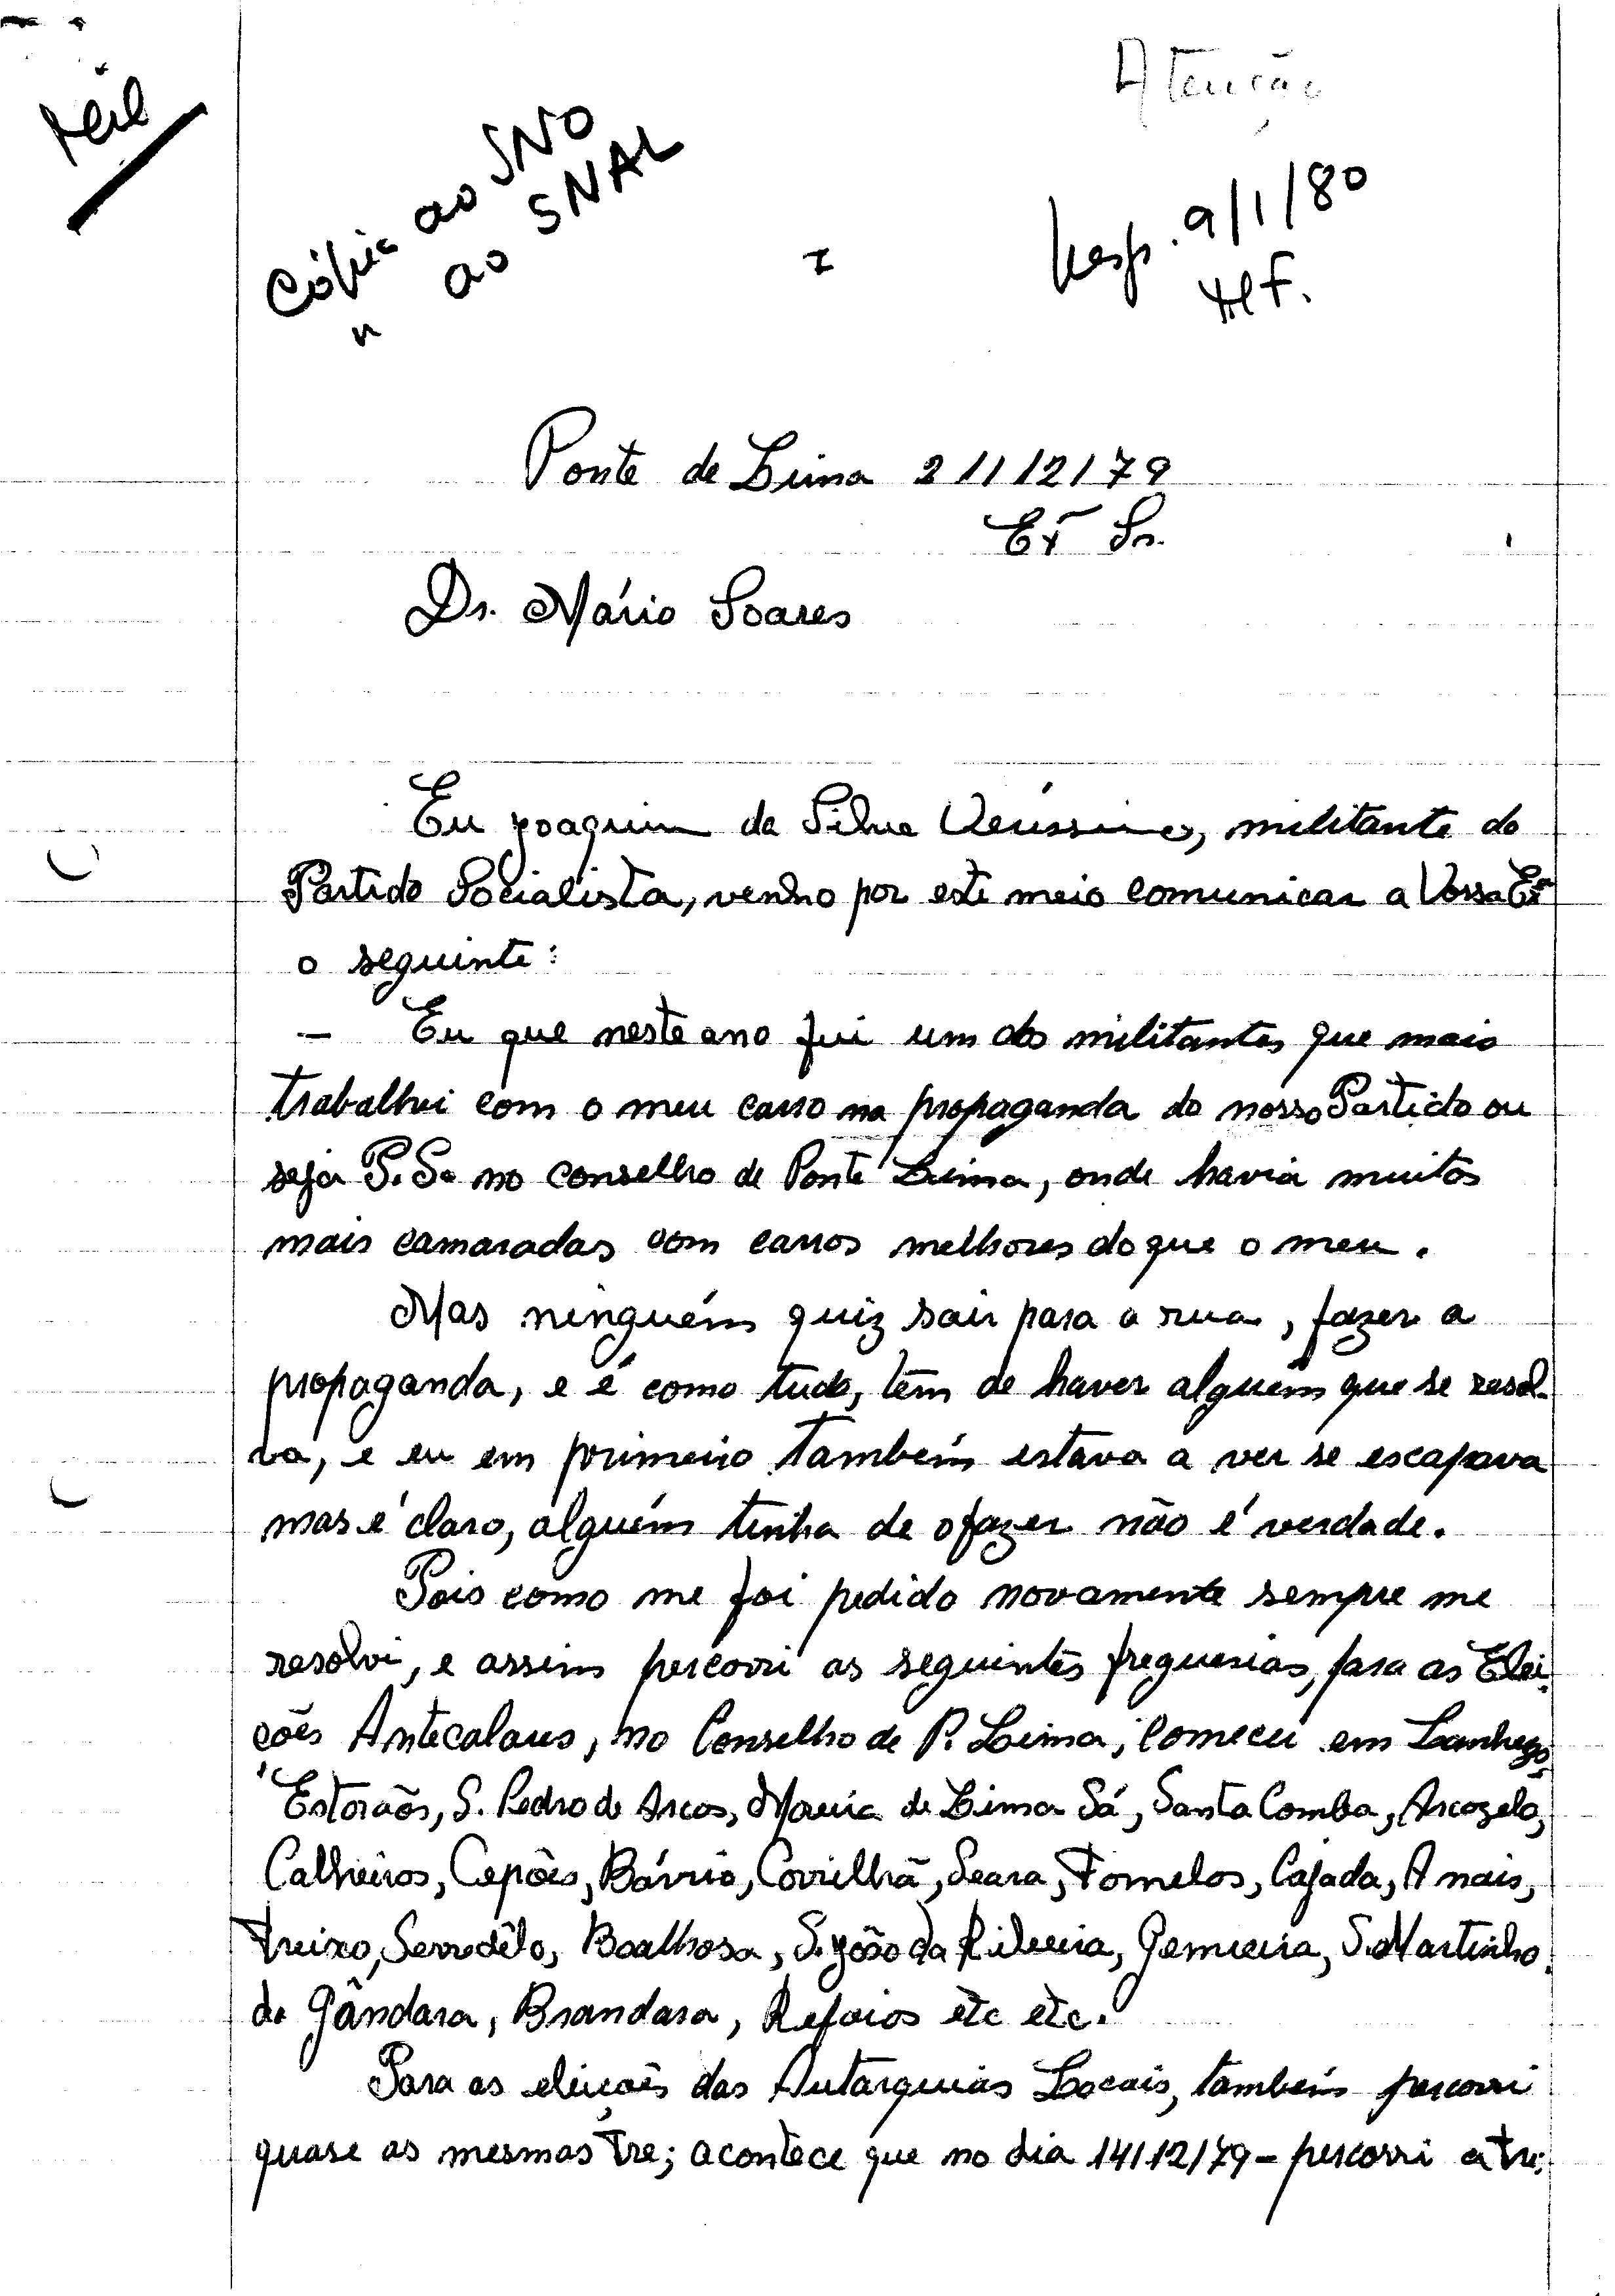 Atenção
Cópia ao SNO
" ao SNAL
I
Resp. 9/1/80
Ponte de Lima 21/12/79
Exº Sr.
Dr. Mário Soares
Eu Joaquim da Silva Veríssimo, militante do
Partido Socialista, venho por este meio comunicar a Vossa Exª
o seguinte:
— Eu que neste ano fui um dos militantes que mais
trabalhei com o meu carro na propaganda do nosso Partido ou
seja P.S. no conselho de Ponte Lima, onde havia muitos
mais camaradas com carros melhores do que o meu.
Mas ninguém quiz sair para a rua, fazer a
propaganda, e é como tudo, têm de haver alguém que se resol-
va, e eu em primeiro também estava a ver se escapava
mas é claro, alguém tinha de o fazer não é verdade.
Pois como me foi pedido novamente sempre me
resolvi, e assim percorri as seguintes freguesias, para as Elei-
ções Antecalares, no Conselho de P. Lima, comecei em
Estorãos, S. Pedro de Arcos, de Lima Sá, Santa Comba, Arcozelo,
Calheiros, Cepões, Bárrio, Corrilhã, Seara, Fornelos, Cajada, Anais,
Freixo, Serredêlo, Boalhosa, S. João da Ribeira, Gemieira, S. Martinho
da Gândara, Brandara, Refoios etc etc.
Para as eleições das Autarquias Locais, também percorri
quase as mesmas Fre; acontece que no dia 14/12/79 - percorri a Fre: